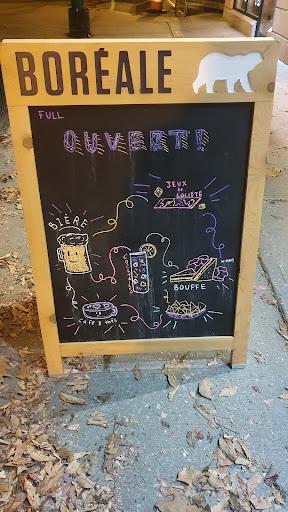 BORÉALE
FULL
OUVERT!
JEUX
DE
SOCIÉTÉ
BIÈRE
BOUFFE
CAFÉ & THÉS